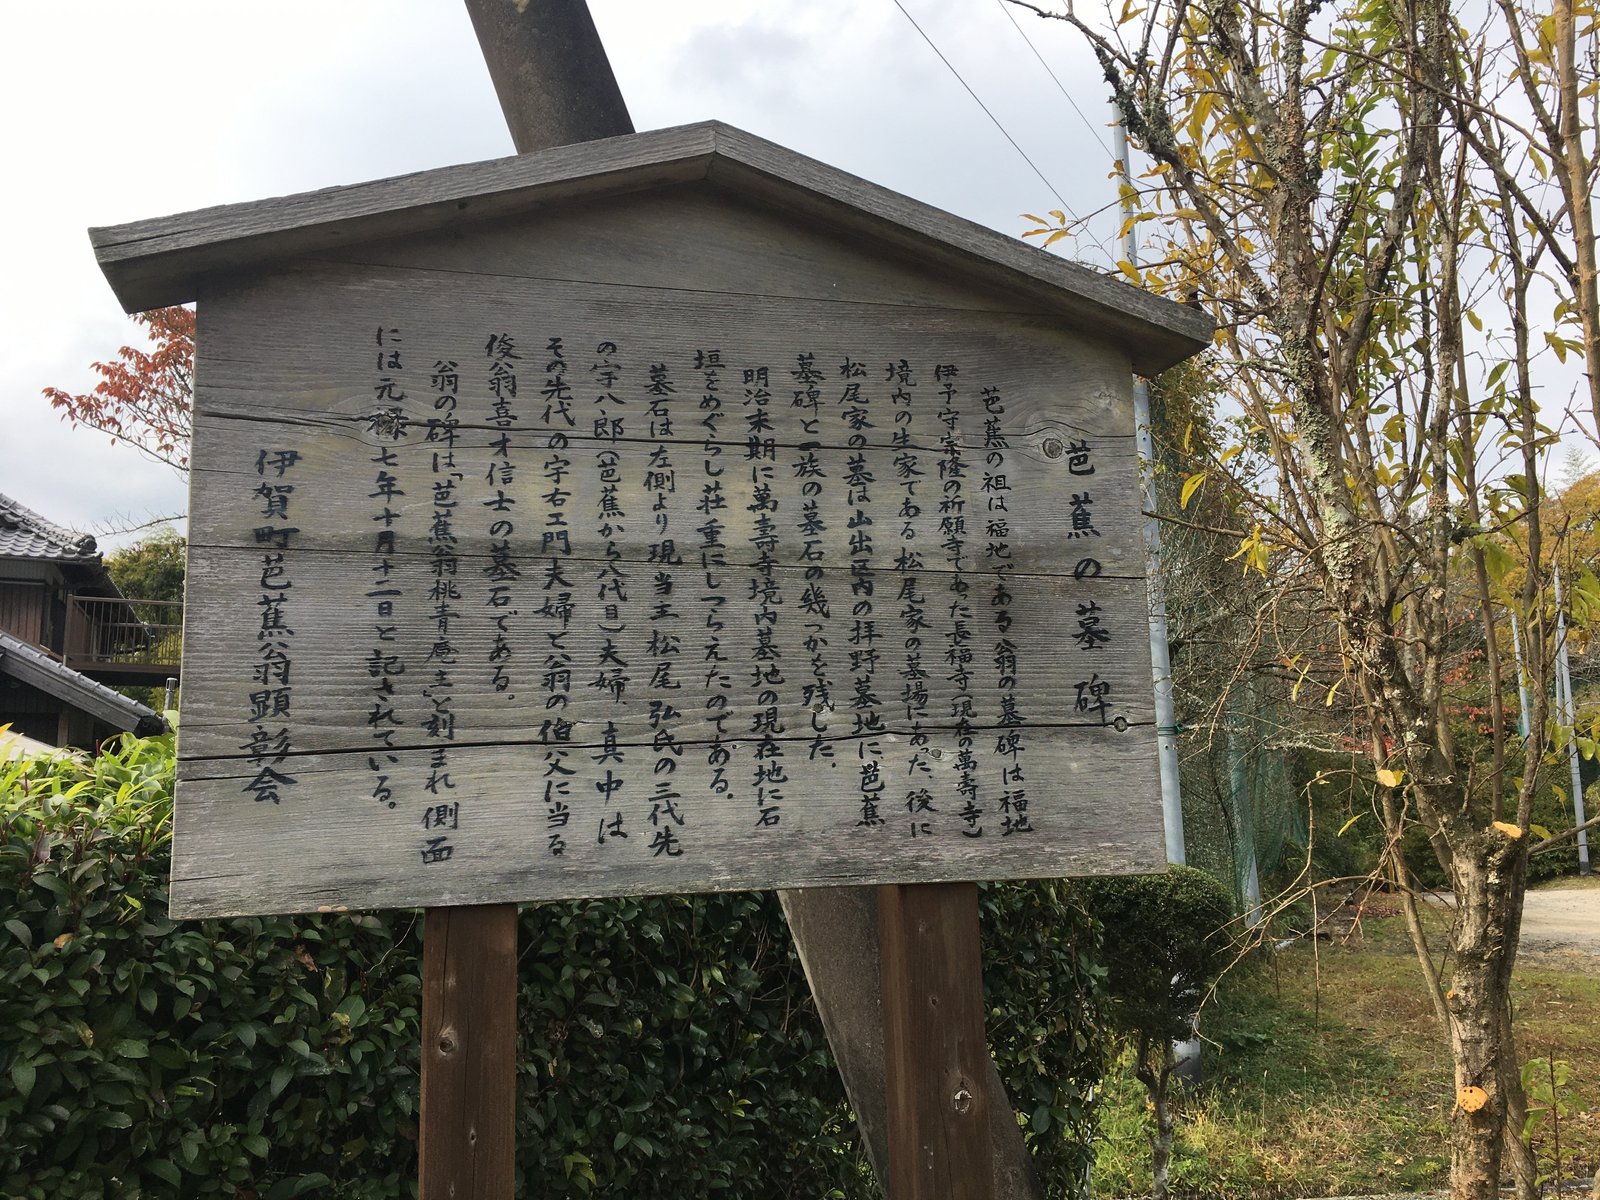 芭蕉の墓碑
芭蕉の祖は福地である翁の墓碑は福地
伊予守宗隆の祈願寺であった長福寺(現在の萬壽寺)
境内の生家である松尾家の墓場にあった、後に
松尾家の墓は山出区内の拝野墓地に、芭蕉
墓碑と一族の墓石の幾つかを残した。
明治末期に萬壽寺境内墓地の現在地に石
垣をめぐらし荘重にしつらえたのである。
墓石は左側より現当主松尾弘氏の三代先
の宇八郎(芭蕉から八代目)夫婦、真中は
その先代の宇右エ門夫婦と翁の伯父に当る
俊翁喜才信士の墓石である。
翁の碑は「芭蕉翁桃青庵主」と刻まれ側面
には元禄七年十月十二日と記されている。
伊賀町芭蕉翁顕彰会